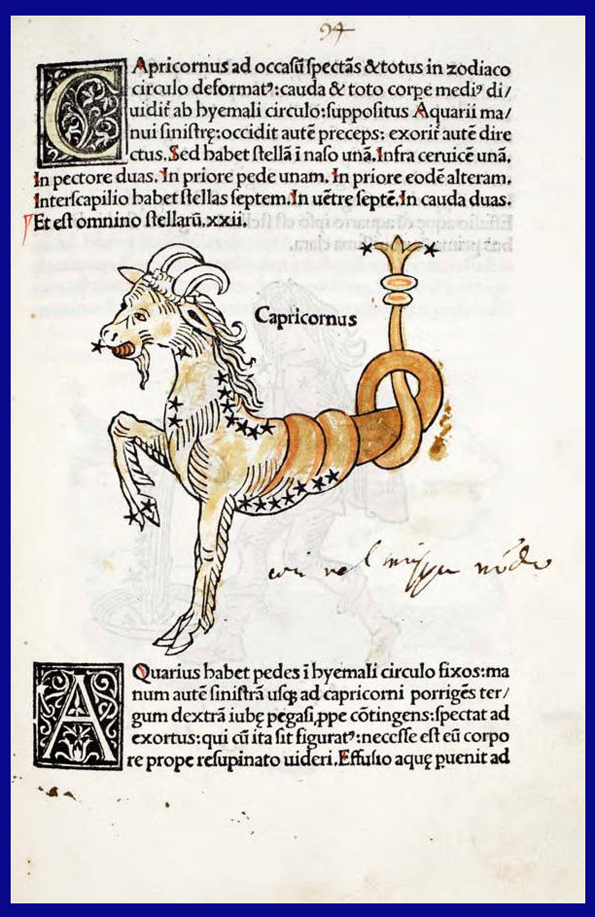 94
Capricornus ad occasũ spectãs & totus in zodiaco
circulo deformatꝰ: cauda & toto corpe mediꝰ di/
uidit̃ ab hyemali circulo: suppositus Aquarii ma/
nui sinistrę: occidit autẽ preceps: exorit̃ autẽ dire
ctus. Sed habet stellã ĩ naso unã. Infra ceruicẽ unã.
In pectore duas. In priore pede unam. In priore eodẽ alteram.
Interscapilio habet stellas septem. In uẽtre septẽ. In cauda duas.
Et est omnino stellarũ. xxii.
Capricornus
AQuarius habet pedes ĩ hyemali circulo fixos: ma
num autẽ sinistrã usqꝫ ad capricorni porrigẽs ter/
gum dextrã iubę pegasi, ppe cõtingens: spectat ad
exortus: qui cũ ita sit figuratꝰ: necesse est eũ corpo
re prope resupinato uideri. Effusio aquę puenit ad